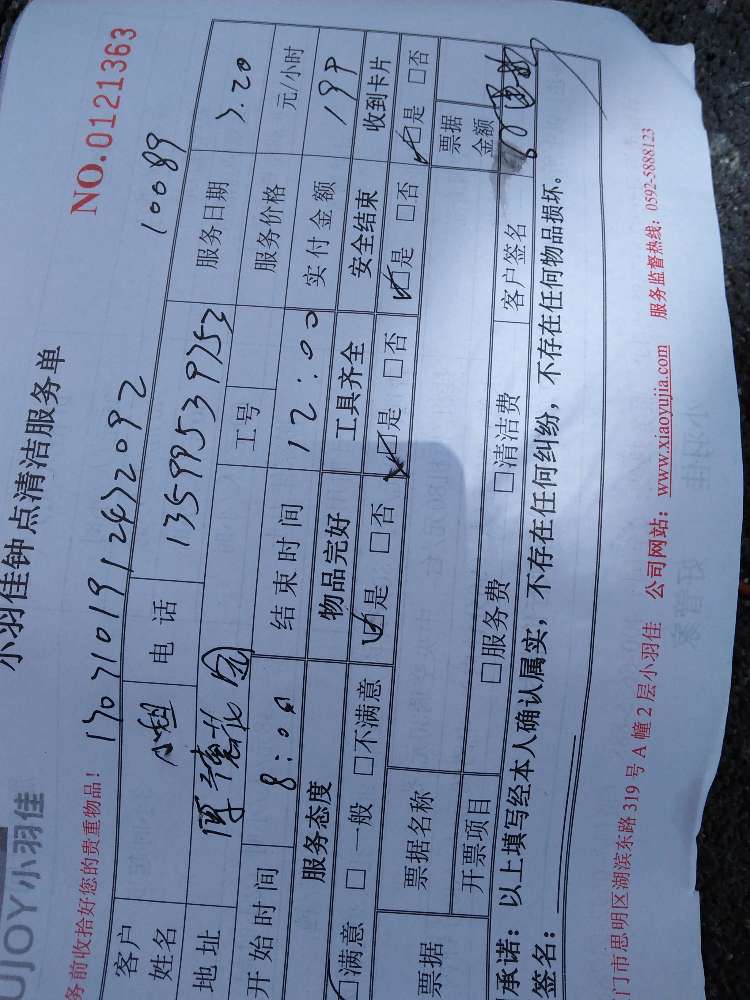 UJOY小羽佳
小羽佳钟点清洁服务单
NO.0121363
务前收拾好您的贵重物品!
10089
客户姓名 电话 13599539753 服务日期 7.20
地址 工号 服务价格 元/小时
开始时间 8:00 结束时间 12:00 实付金额
服务态度 物品完好 工具齐全 安全结束 收到卡片
满意 □一般 □不满意 是 □否 是 □否 是 □否 是 □否
票据 票据名称 票据金额
开票项目 □服务费 □清洁费 客户签名
承诺:以上填写经本人确认属实,不存在任何纠纷,不存在任何物品损坏。
签名:
门市思明区湖滨东路 319 号 A 幢 2 层小羽佳 公司网站:www.xiaoyujia.com 服务监督热线:0592-5888123